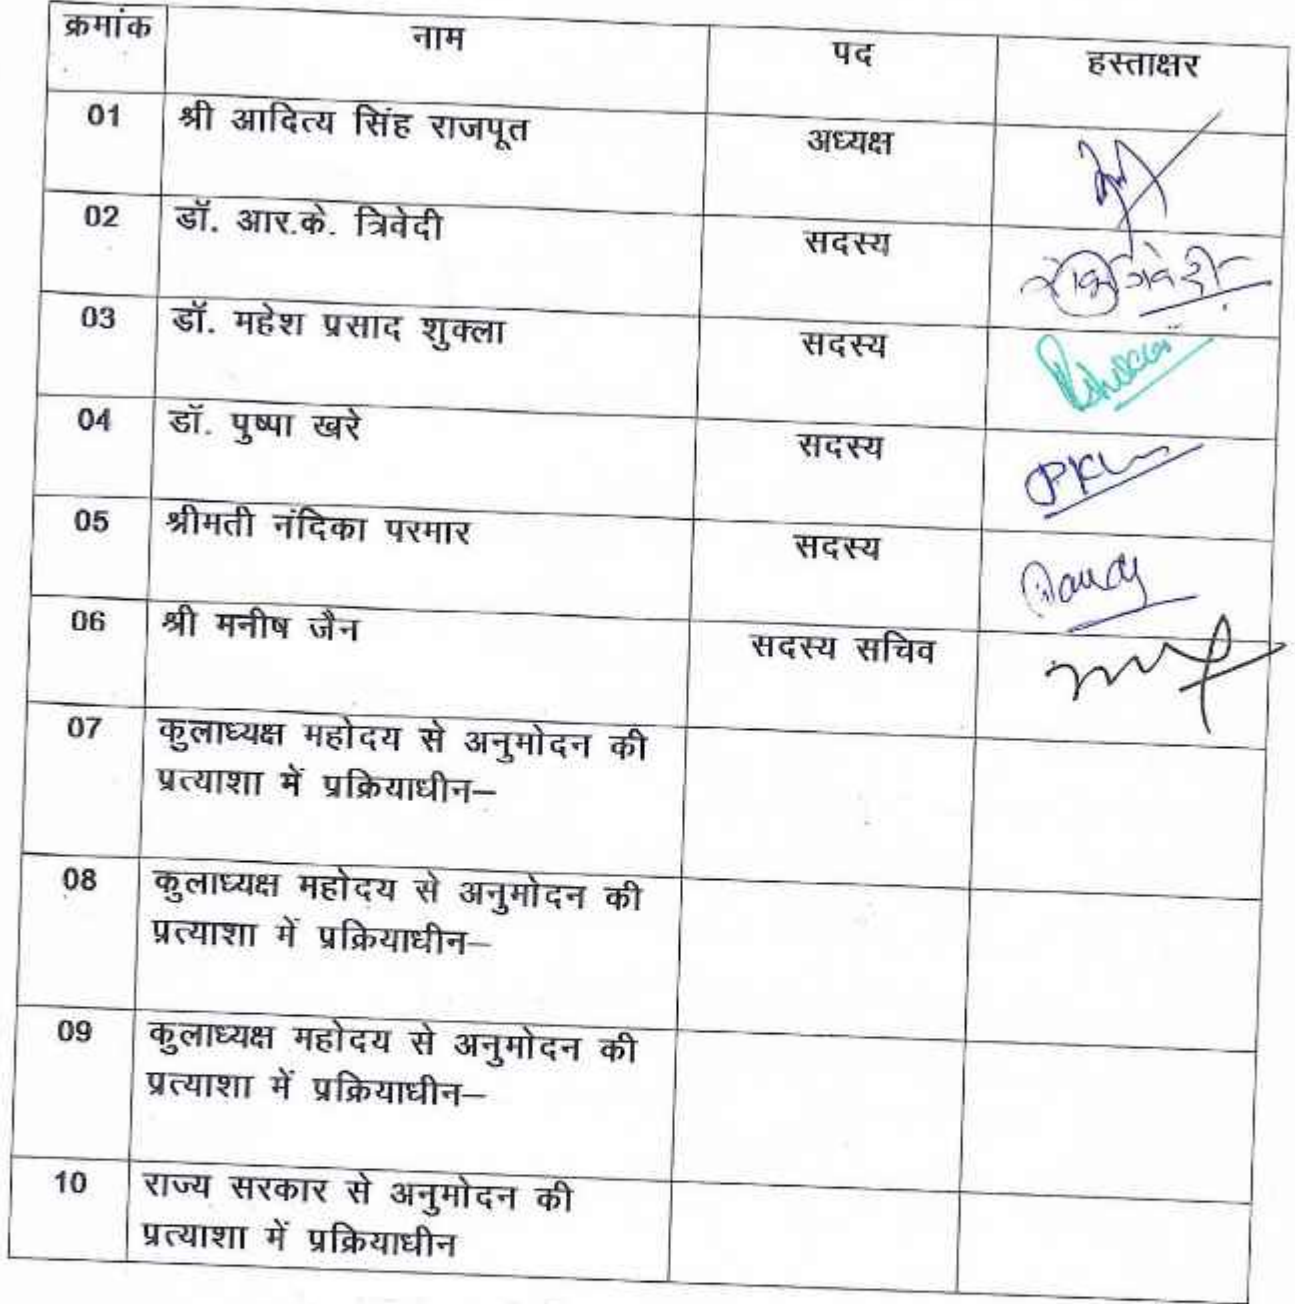 क्रमांक नाम पद हस्ताक्षर
01 श्री आदित्य सिंह राजपूत अध्यक्ष
02 डॉ. आर.के. त्रिवेदी सदस्य
03 डॉ. महेश प्रसाद शुक्ला सदस्य
04 डॉ. पुष्पा खरे सदस्य
05 श्रीमती नंदिका परमार सदस्य
06 श्री मनीष जैन सदस्य सचिव
07 कुलाध्यक्ष महोदय से अनुमोदन की
प्रत्याशा में प्रक्रियाधीन–
08 कुलाध्यक्ष महोदय से अनुमोदन की
प्रत्याशा में प्रक्रियाधीन–
09 कुलाध्यक्ष महोदय से अनुमोदन की
प्रत्याशा में प्रक्रियाधीन–
10 राज्य सरकार से अनुमोदन की
प्रत्याशा में प्रक्रियाधीन